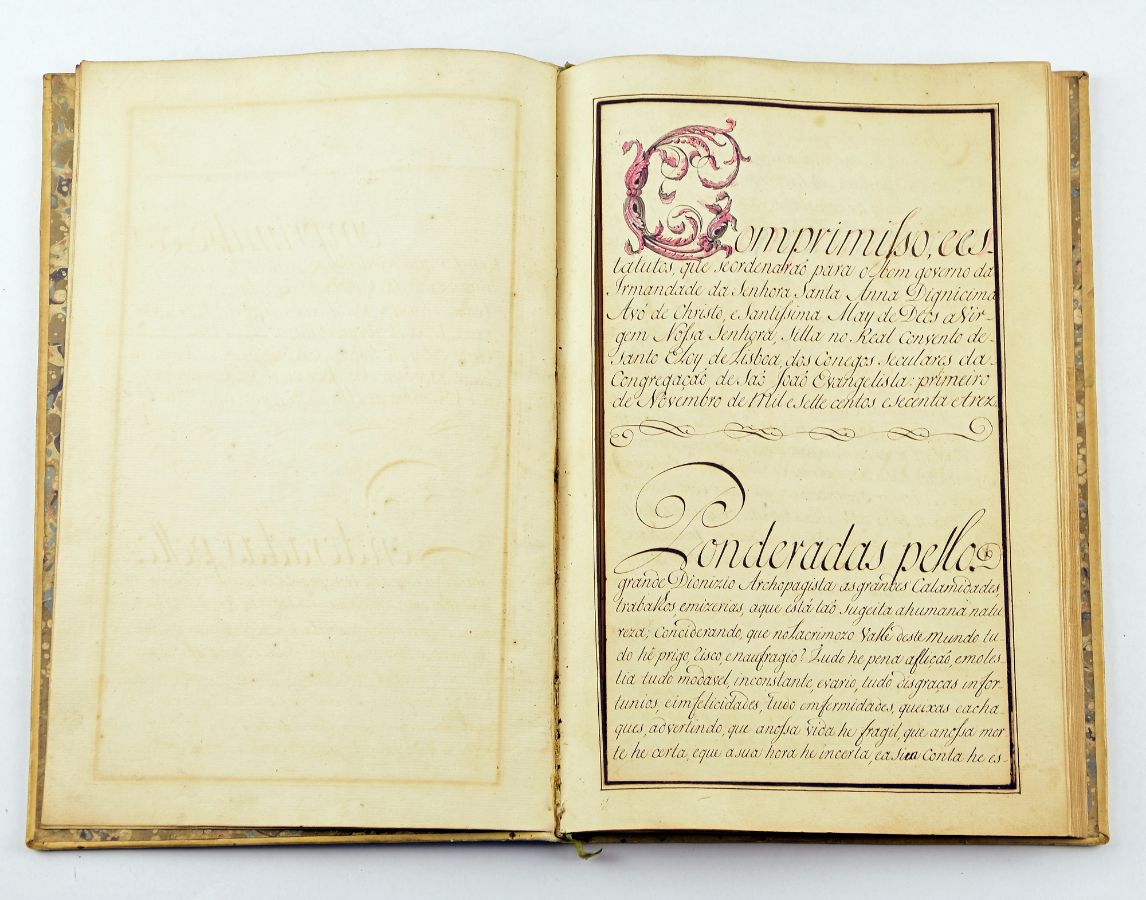 Comprimisso, e es-
tatutos, que se ordenaraó para o bom governo da
Irmandade da Senhora Santa Anna Dignicima
Avó de Christo, e Santissima May de Deos a Vir-
gem Nossa Senhora, Sitta no Real Convento de
Santo Eloy de Lisboa, dos Conegos Seculares da
Congregaçaó de Saó Joaó Evangelista: primeiro
de Novembro de Mil e Sette centos e secenta e trez.
Ponderadas pello
grande Dionizio Archopagista as grandes Calamidades,
trabalhos, e mizerias, a que está taó Sugeita a humana natu
reza; Conciderando, que no Lacrimozo Valle deste mundo tu-
do hé prigo, Risco, e naufragio? Tudo he pena aflicaó, e moles-
tia tudo modavel, inconstante, e vario, tudo disgraças infor-
tunios, e imfelicidades, tudo emfermidades, queixas e acha-
ques, advertindo, que a nossa vida he fragil, que a nossa mor
te he certa, e que a sua hora he incerta, e a Sua Conta he es-